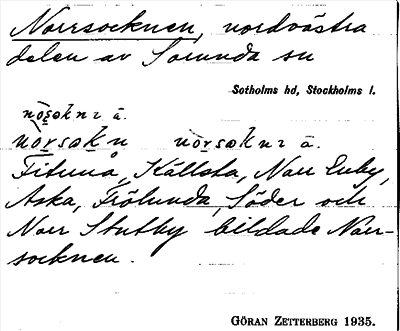 Norrsocknen, nordvästra
delen av Sorunda sn
Sotholms hd, Stockholms l.
nòsoknɿ ä.
nòrsokn nòrsoknɿ ä.
Fituna, Källsta, Norr Enby,
Aska, Frölunda, Söder och
Norr Stutby bildade Norr-
socknen.
GÖRAN ZETTERBERG 1935.